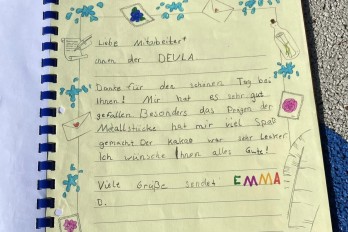 Liebe Mitarbeiter*
innen der DEULA
Danke für den schönen Tag bei
Ihnen! Mir hat es sehr gut
gefallen. Besonders das Prägen der
Metallstücke hat mir viel Spaß
gemacht. Der Kakao war sehr lecker
Ich wünsche Ihnen alles Gute!
Viele Grüße sendet EMMA
D.